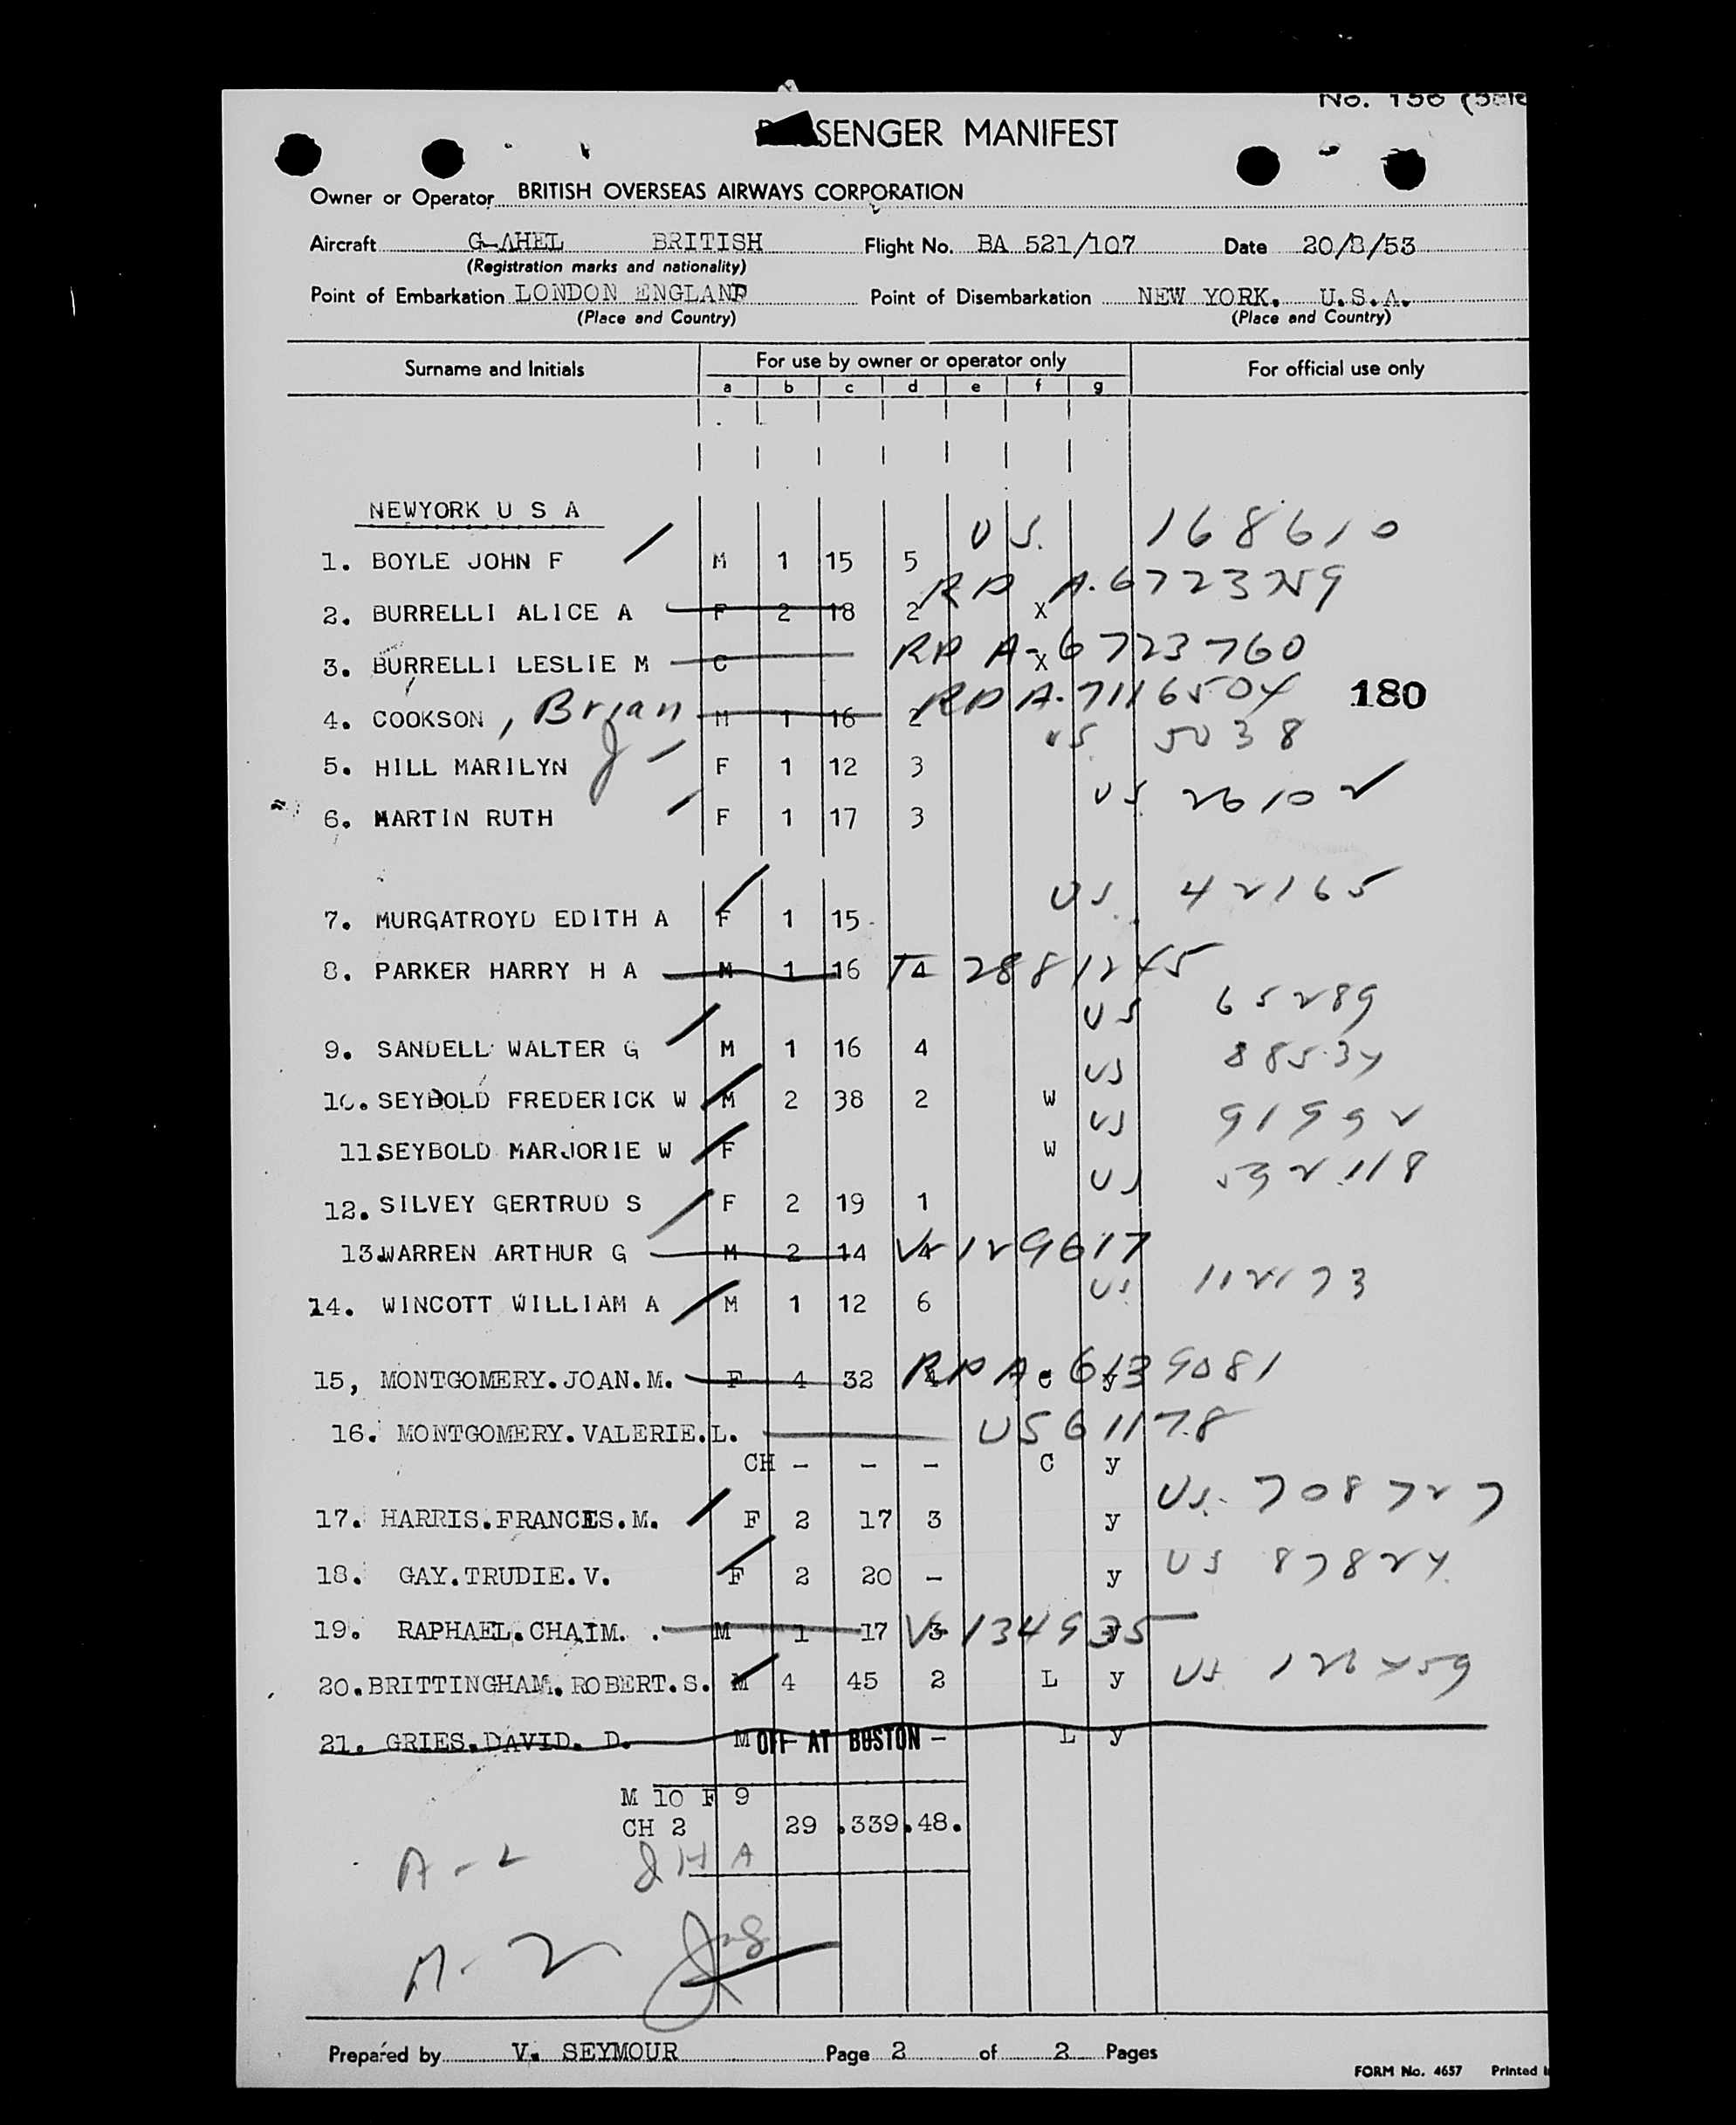 PASSENGER MANIFEST
Owner or Operator BRITISH OVERSEAS AIRWAYS CORPORATION
Aircraft G-AHEL BRITISH Flight No. BA 521/107 Date 20/8/53
(Registration marks and nationality)
Point of Embarkation LONDON ENGLAND Point of Disembarkation NEW YORK. U.S.A.
(Place and Country) (Place and Country)
Surname and Initials For use by owner or operator only For official use only
a b c d e f g
NEWYORK U S A
1. BOYLE JOHN F M 1 15 5 US. 168610
2. BURRELLI ALICE A F 2 18 2 X RP A-6723759
3. BURRELLI LESLIE M C X RP A-6723760
4. COOKSON, Brian M 1 16 2 RP A-7116504 180
5. HILL MARILYN J F 1 12 3 US 5038
6. MARTIN RUTH F 1 17 3 US 26102
7. MURGATROYD EDITH A F 1 15 US 42165
8. PARKER HARRY H A M 1 16 4 2881245
9. SANDELL WALTER G M 1 16 4 US 65289
10. SEYBOLD FREDERICK W M 2 38 2 W US 88534
11. SEYBOLD MARJORIE W F W US 91992
12. SILVEY GERTRUD S F 2 19 1 US 592118
13. WARREN ARTHUR G M 2 14 4 V 129617
14. WINCOTT WILLIAM A M 1 12 6 US 112173
15, MONTGOMERY.JOAN.M. F 4 32 4 C y RP A-6139081
16. MONTGOMERY.VALERIE.L. US 61178
CH - - - C y
17. HARRIS.FRANCES.M. F 2 17 3 y US 708727
18. GAY.TRUDIE.V. F 2 20 - y US 87824
19. RAPHAEL.CHAIM. . M 1 17 3 y V 134935
20. BRITTINGHAM.ROBERT.S. M 4 45 2 L y US
21. GRIES.DAVID. D. M OFF AT BOSTON - L y
M 10 F 9
CH 2 29 .339.48.
A-2
A-2
Prepared by V. SEYMOUR Page 2 of 2 Pages
FORM No. 4657 Printed